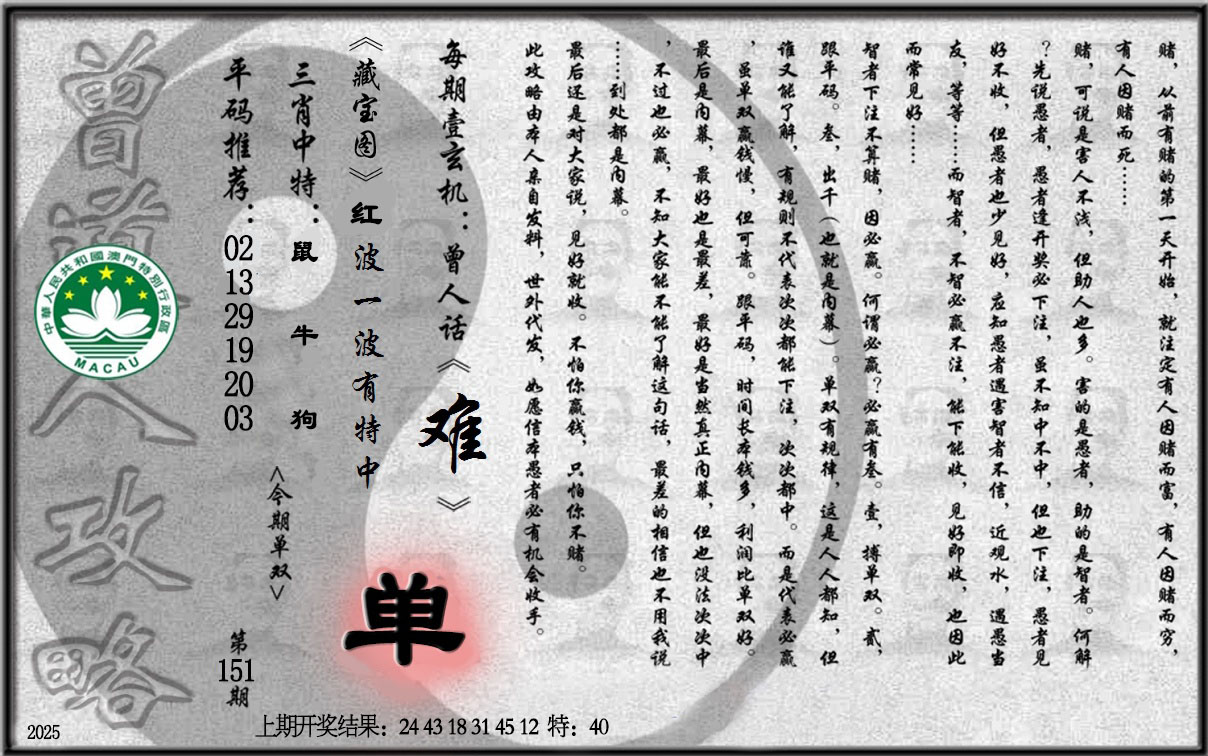 赌，从前有赌的第一天开始，就注定有人因赌而富，有人因赌而穷，
有人因赌而死……
赌，可说是害人不浅，但助人也多。害的是愚者，助的是智者。何解
？先说愚者，愚者逢开奖必下注，虽不知中不中，但也下注，愚者见
好不收，但愚者也少见好，应知愚者遇害智者不信，近观水，遇愚当
友，等等……而智者，不智必赢不注，能下能收，见好即收，也因此
而常见好……
智者下注不算赌，因必赢。何谓必赢？必赢有叁。壹，搏单双。贰，
跟平码。叁，出千（也就是内幕）。单双有规律，这是人人都知，但
谁又能了解，有规则不代表次次都能下注，次次都中。而是代表必赢
，虽单双赢钱慢，但可靠。跟平码，时间长本钱多，利润比单双好。
最后是内幕，最好也是最差，最好是当然真正内幕，但也没法次次中
，不过也必赢，不知大家能不能了解这句话，最差的相信也不用我说
……到处都是内幕。
最后还是对大家说，见好就收。不怕你赢钱，只怕你不赌。
此攻略由本人亲自发料，世外代发，如愿信本愚者必有机会收手。
每期壹玄机：曾人话《难》
《藏宝图》红波一波有特中
单
三肖中特：鼠 牛 狗
<今期单双>
平码推荐：02 13 29 19 20 03
第151期
曾道人攻略
中華人民共和國澳門特別行政區
MACAU
上期开奖结果：24 43 18 31 45 12 特：40
2025